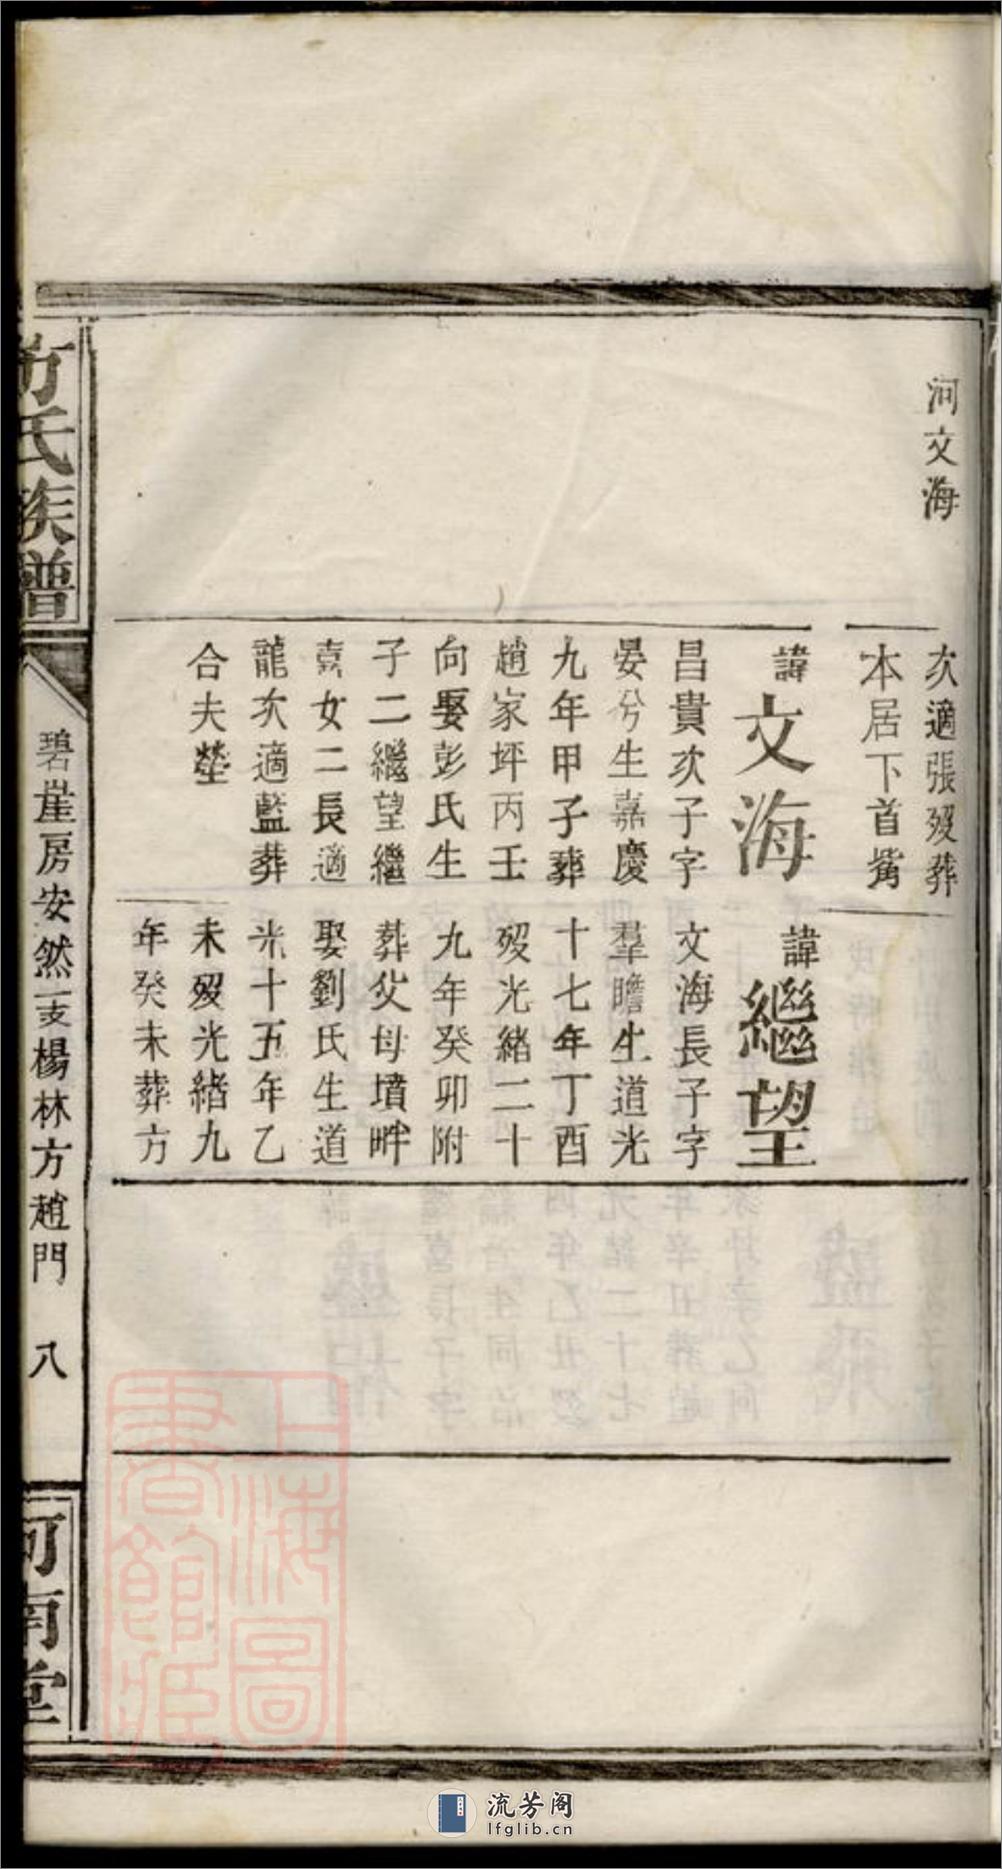 河文海
次適張歿葬
本居下首觜
諱文海
昌貴次子字
晏兮生嘉慶
九年甲子葬
趙家坪丙壬
向娶彭氏生
子二繼望繼
熹女二長適
龍次適藍葬
合夫塋
諱繼望
文海長子字
羣瞻生道光
十七年丁酉
歿光緒二十
九年癸卯附
葬父母墳畔
娶劉氏生道
光十五年乙
未歿光緒九
年癸未葬方
氏族譜
碧崖房安然一支楊林方趙門 八
河南堂
上海圖書館藏
流芳阁
lfglib.cn